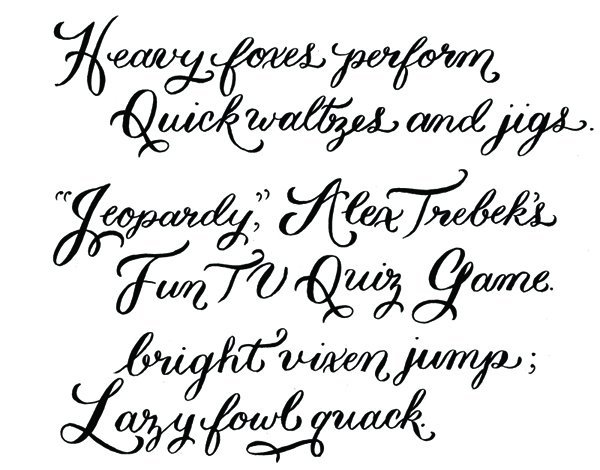 Heavy foxes perform
Quick waltzes and jigs.
"Jeopardy," Alex Trebek's
Fun TV Quiz Game.
bright vixen jump;
Lazy fowl quack.